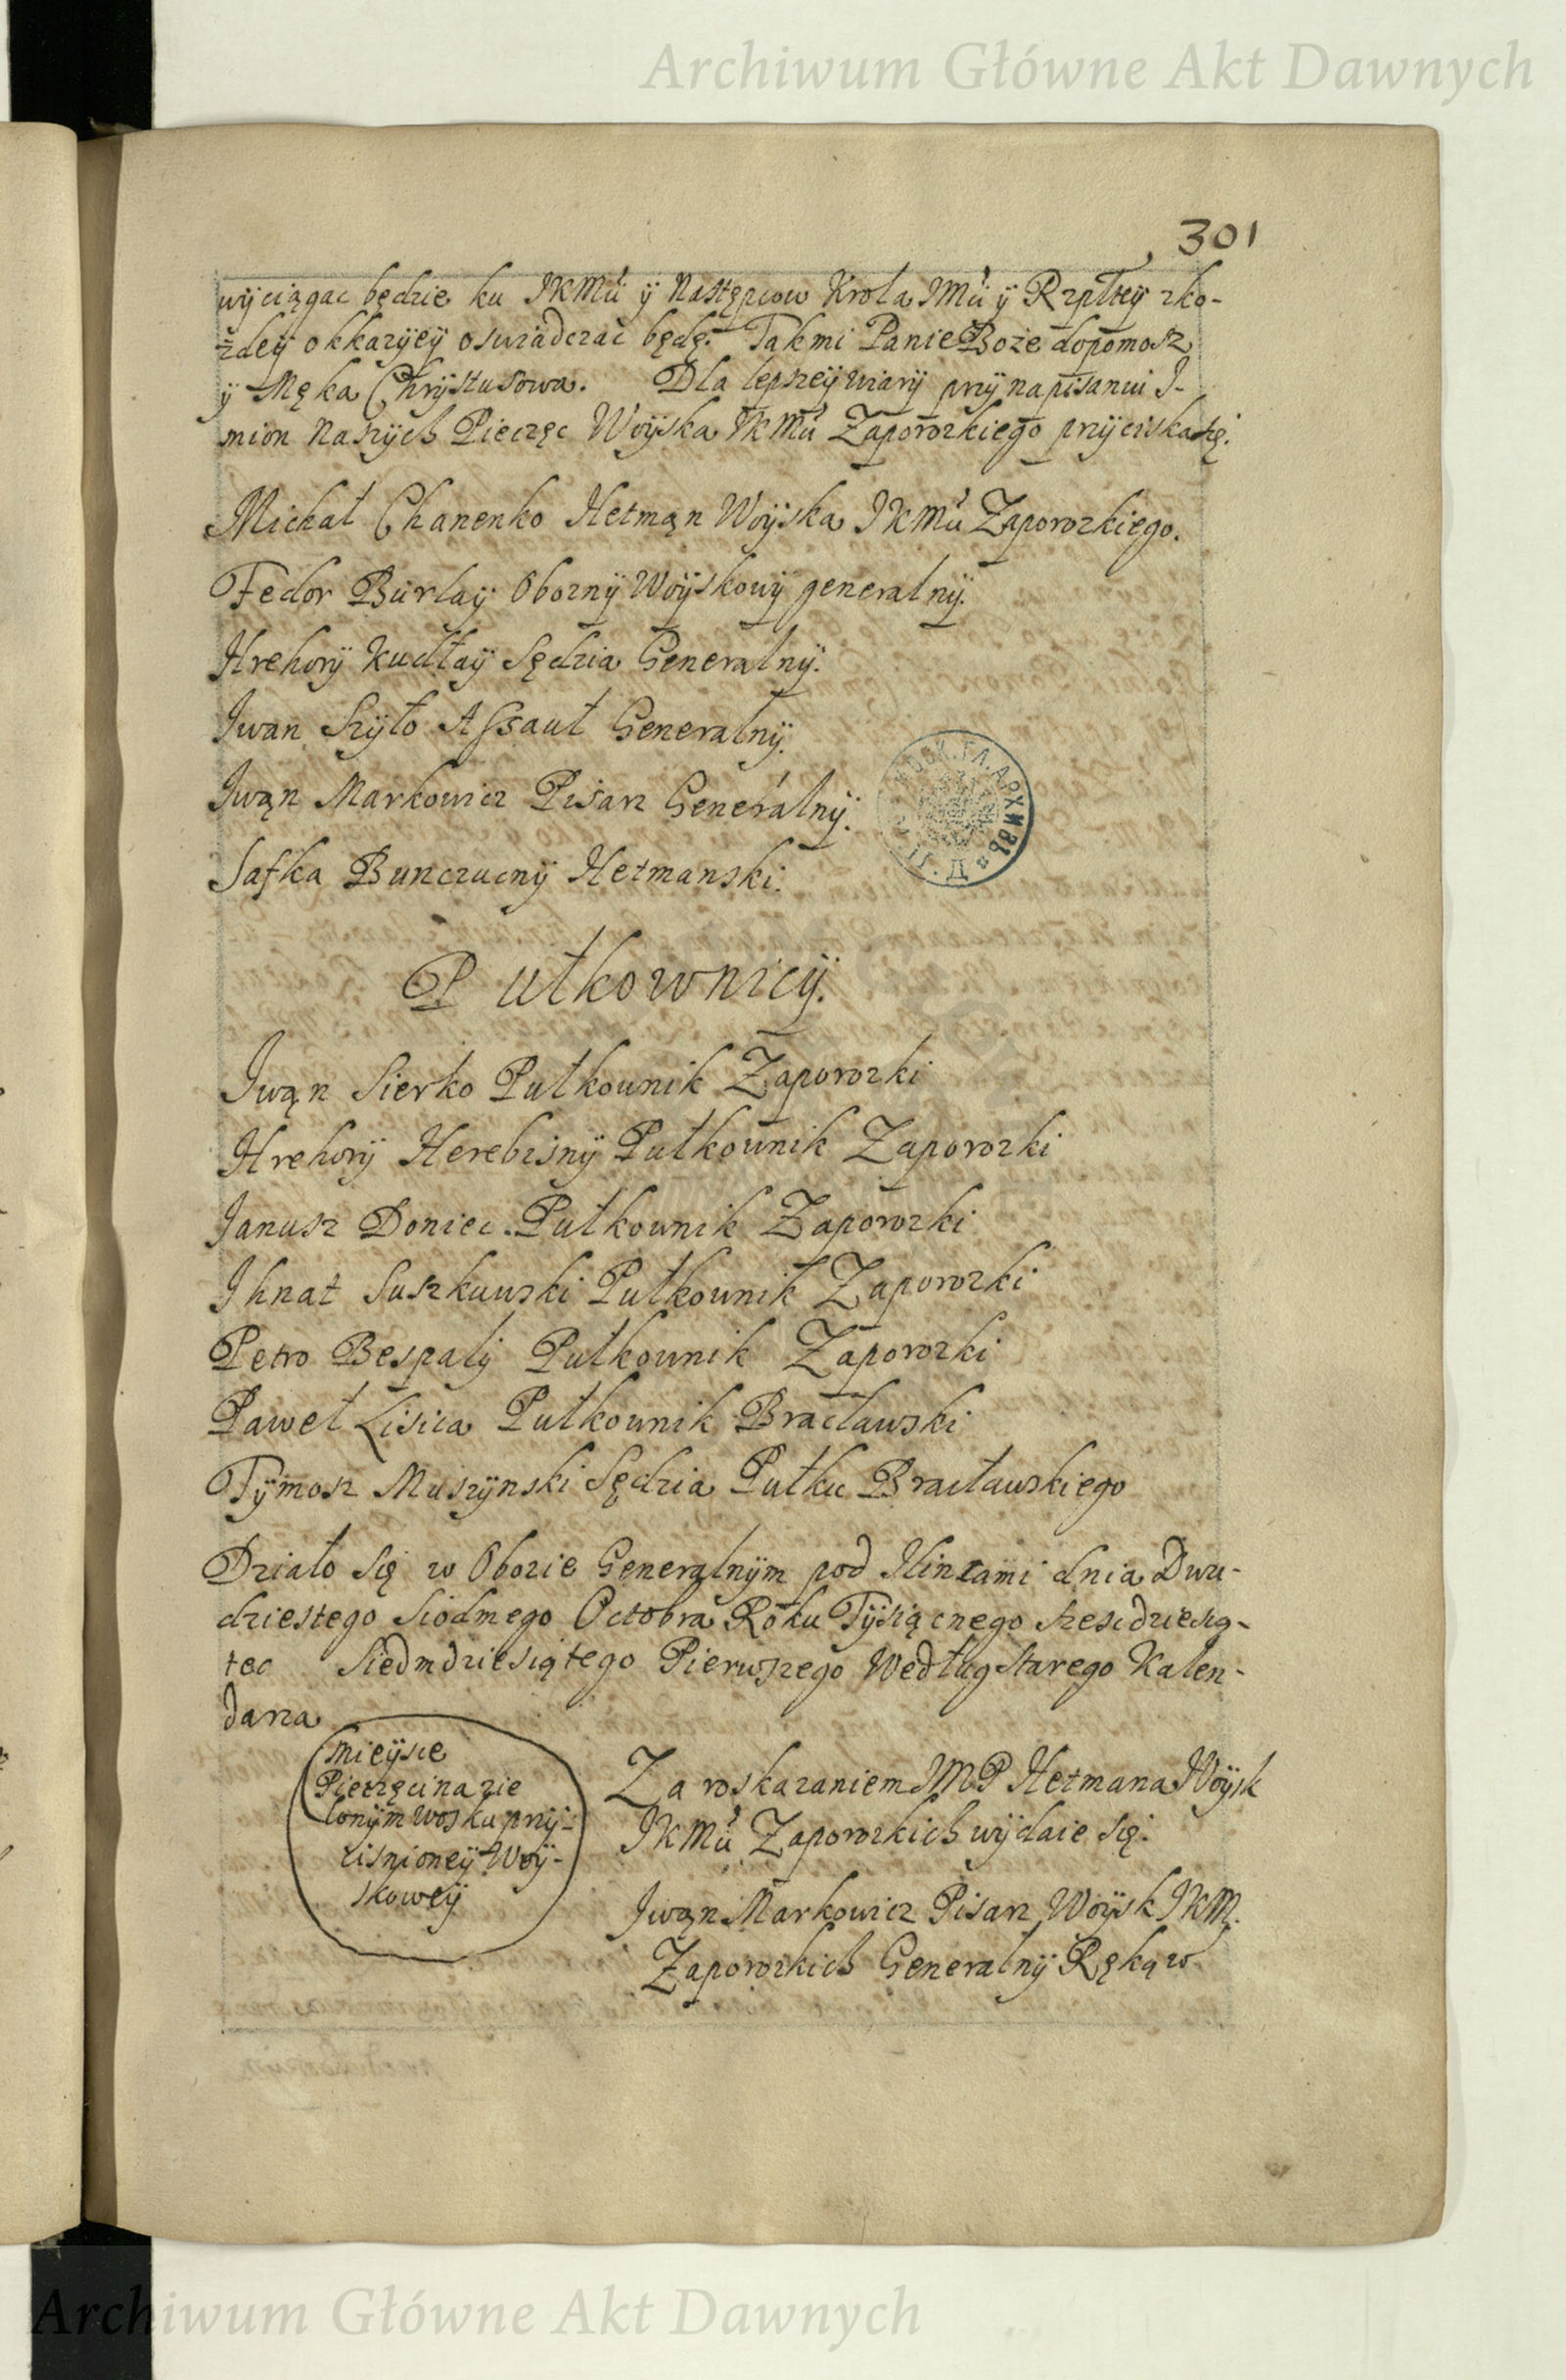 Archiwum Główne Akt Dawnych
301
wyciągac będzie ku JKMći ÿ Następcow Krola JMći ÿ Rzpltey zko-
żdeÿ okkazÿeÿ oswiadczac będę. Tak mi Panie Boże dopomosz
ÿ Męka Chrÿstusowa. Dla lepszeÿ wiarÿ przÿ napisaniu I-
mion Naszÿch Pieczęc Woÿska JKMći Zaporozkiego przÿciskasię.
Michał Chanenko Hetmąn Woÿska JKMći Zaporozkiego.
Fedor Burlaÿ Oboznÿ Woÿskowÿ generalnÿ.
Hrehorÿ Kudłaÿ Sędzia Generalnÿ.
Jwan Szÿło Assauł Generalnÿ.
Jwąn Markowicz Pisarz Generalnÿ.
Safka Bunczucnÿ Hetmanski.
Pułkownicÿ.
Jwąn Sierko Pułkownik Zaporozki
Hrehorÿ Herebisnÿ Pułkownik Zaporozki
Janusz Doniec Pułkownik Zaporozki
Jhnat Suszkuwski Pułkownik Zaporozki
Petro Bespalÿ Pułkownik Zaporozki
Paweł Lisica Pułkownik Bracławski
Tÿmosz Muszÿnski Sędzia Pułku Bracławskiego
Działo się w Obozie Generalnÿm pod Ilincami dnia Dwu-
dziestego Siodmego Octobra Roku Tÿsiącnego szescdziesią-
tec Siedmdziesiątego Pierwszego Według starego Kalen-
darza
Mieÿsce
Pieczęci na zie
lonÿm wosku przÿ-
cisnioneÿ Woÿ-
skoweÿ
Za roskazaniem JMP Hetmana Woÿsk
JKMći Zaporozkich wÿdaie się.
Jwąn Markowicz Pisarz Woÿsk JKM.
Zaporozkich Generalnÿ Ręką w
Archiwum Główne Akt Dawnych